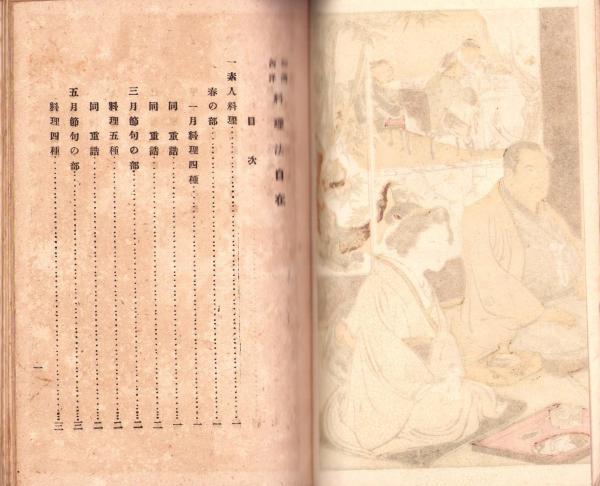 料理法自在
目次
一素人料理……一
春の部……一
一月料理四種……一
同　重詰……一
同　重詰……二
三月節句の部……二
料理五種……二
同　重詰……二
五月節句の部……三
料理四種……三
一